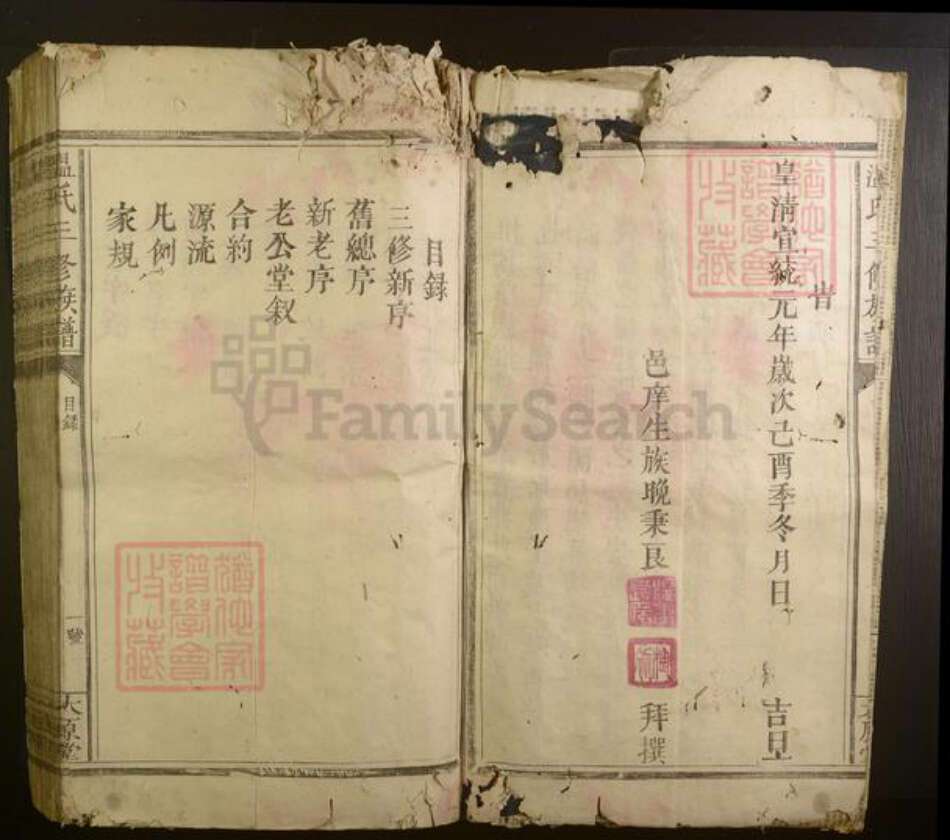 旹
皇清宣統元年歲次己酉季冬月日 吉旦
邑庠生族晚秉艮 拜撰
目錄
三修新序
舊總序
新老序
老公堂叙
合約
源流
凡例
家規
溫氏三修族譜
目錄
一號
太原堂
猶他家譜學會收藏
猶他家譜學會收藏
FamilySearch